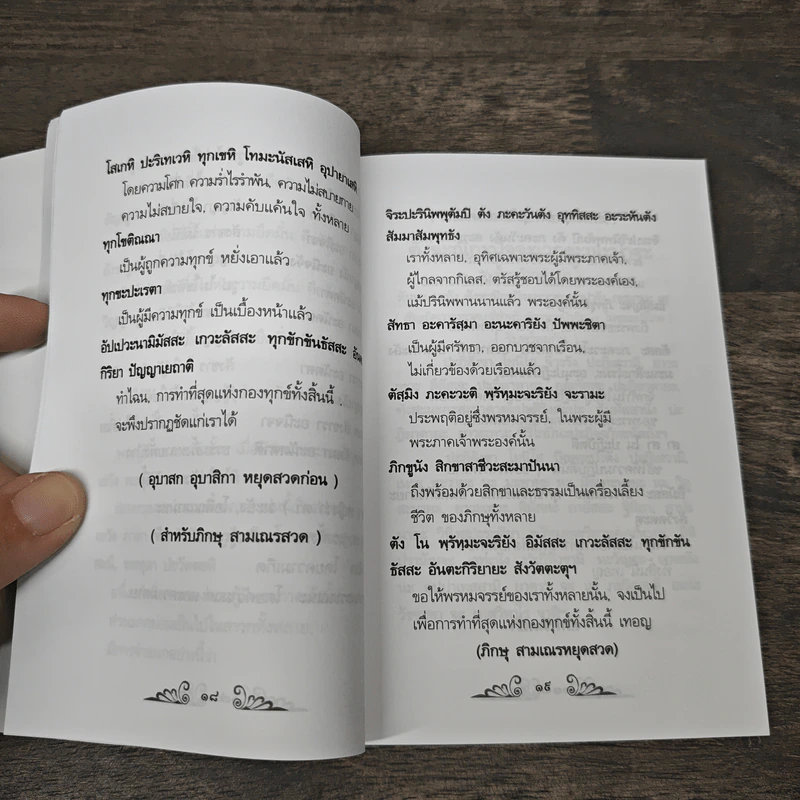 โสเกหิ ปะริเทเวหิ ทุกเขหิ โทมะนัสเสหิ อุปายาเสหิ
โดยความโศก ความร่ำไรรำพัน, ความไม่สบายกาย
ความไม่สบายใจ, ความคับแค้นใจ ทั้งหลาย
ทุกโขติณณา
เป็นผู้ถูกความทุกข์ หยั่งเอาแล้ว
ทุกขะปะเรตา
เป็นผู้มีความทุกข์ เป็นเบื้องหน้าแล้ว
อัปเปวะนามิมัสสะ เกวะลัสสะ ทุกขักขันธัสสะ
กิริยา ปัญญาเยถาติ
ทำไฉน, การทำที่สุดแห่งกองทุกข์ทั้งสิ้นนี้ ,
จะพึงปรากฏชัดแก่เราได้
( อุบาสก อุบาสิกา หยุดสวดก่อน )
( สำหรับภิกษุ สามเณรสวด )
๑๘
จิระปะรินิพพุตัมปิ ตัง ภะคะวันตัง อุททิสสะ อะระหันตัง
สัมมาสัมพุทธัง
เราทั้งหลาย, อุทิศเฉพาะพระผู้มีพระภาคเจ้า,
ผู้ไกลจากกิเลส, ตรัสรู้ชอบได้โดยพระองค์เอง,
แม้ปรินิพพานนานแล้ว พระองค์นั้น
สัทธา อะคารัสฺมา อะนะคาริยัง ปัพพะชิตา
เป็นผู้มีศรัทธา, ออกบวชจากเรือน,
ไม่เกี่ยวข้องด้วยเรือนแล้ว
ตัสฺมิง ภะคะวะติ พฺรัหฺมะจะริยัง จะรามะ
ประพฤติอยู่ซึ่งพรหมจรรย์, ในพระผู้มี
พระภาคเจ้าพระองค์นั้น
ภิกขูนัง สิกขาสาชีวะสะมาปันนา
ถึงพร้อมด้วยสิกขาและธรรมเป็นเครื่องเลี้ยง
ชีวิต ของภิกษุทั้งหลาย
ตัง โน พฺรัหฺมะจะริยัง อิมัสสะ เกวะลัสสะ ทุกขักขัน
ธัสสะ อันตะกิริยายะ สังวัตตะตุฯ
ขอให้พรหมจรรย์ของเราทั้งหลายนั้น, จงเป็นไป
เพื่อการทำที่สุดแห่งกองทุกข์ทั้งสิ้นนี้ เทอญ
(ภิกษุ สามเณรหยุดสวด)
๑๙